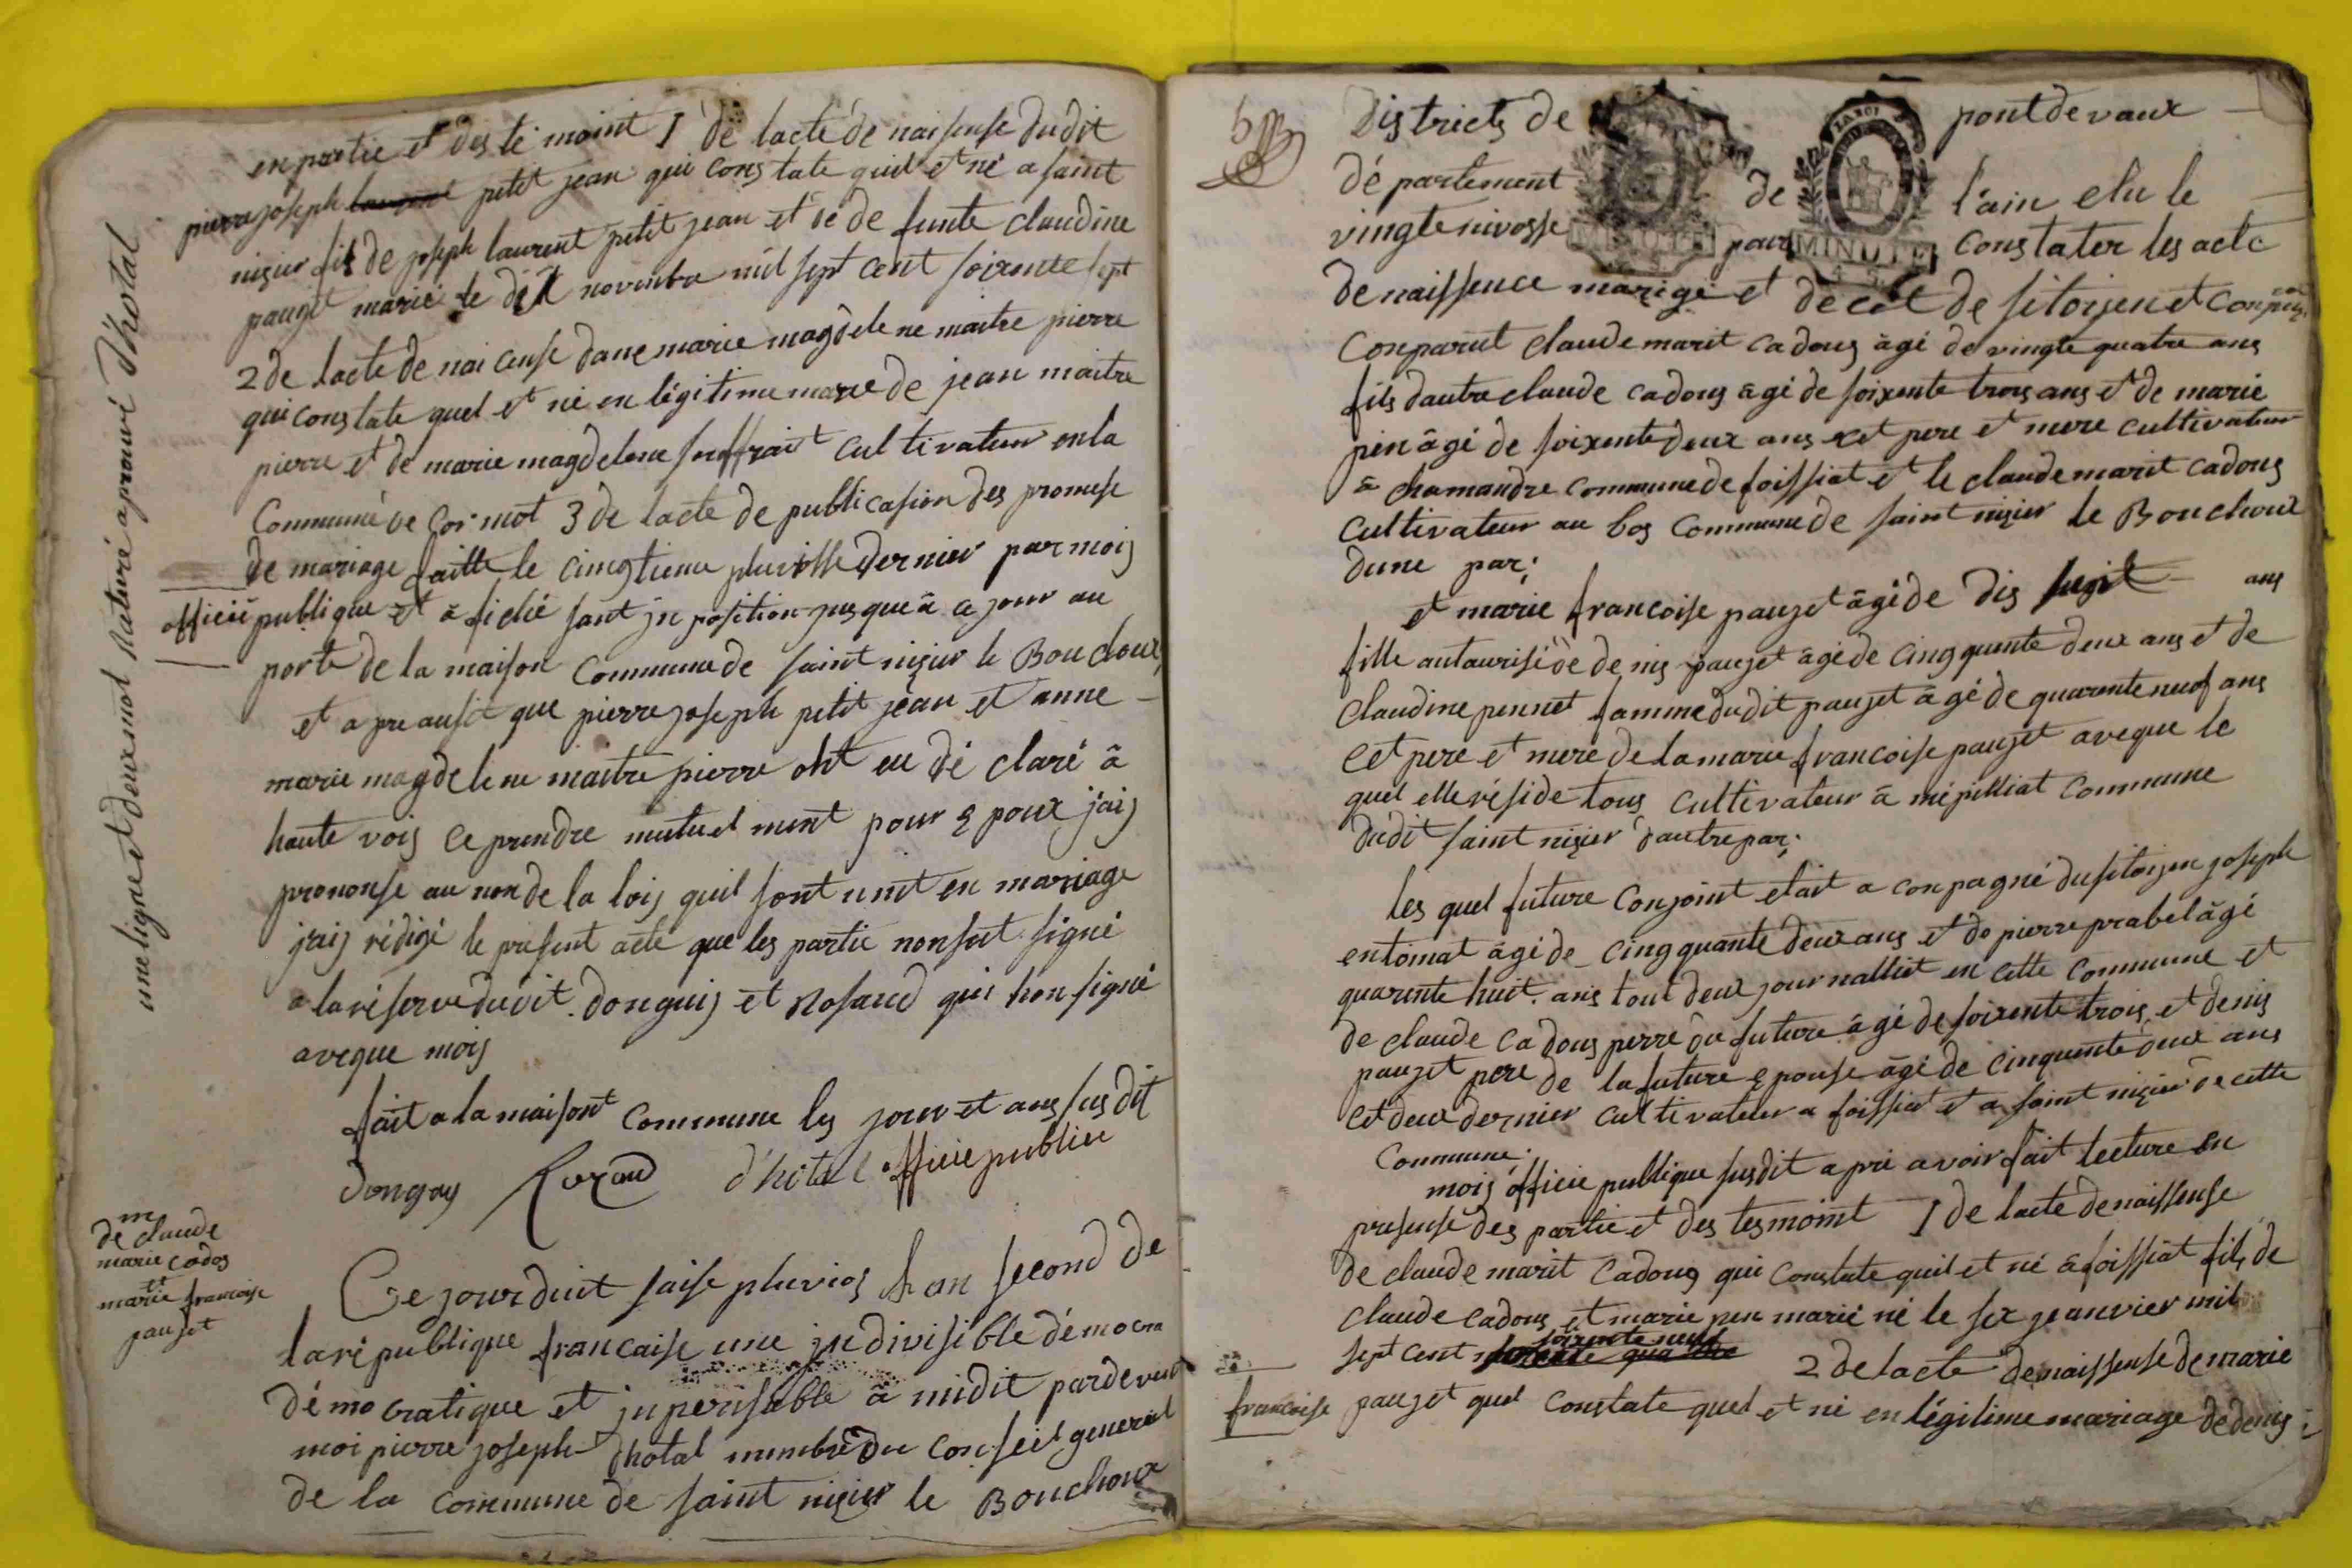 en partie et des té moint 1 de lacte de naisense dudit
pierre joseph petit jean qui constate quil et né a saint
nizier fils de joseph laurent petit jean et de de funte claudine
pauget marié le dit novembre mil sept cent soixente sept
2 de lacte de nai cense dane marie magdelene maitre pierre
qui constate quel et né en légitime marie de jean maitre
pierre et de marie magdelene souffrait cultivateur en la
Commune de Cormot 3 de lacte de publicasion des promese
de mariage faitte le cinqtieme pluviosse dernier par mois
officié publique et afiché sant in position jusqua a ce jour au
porte de la maison Commune de saint nizier le Bouchoux
et a pre ausit que pierre joseph petit jean et anne
marie magdelene maitre pierre oht eu dé claré à
haute vois ce prendre mutuel ment pour é poux j'ais
prononse au non de la lois quil sont unit en mariage
j'ais rédigé le present acte que les partie nonsut signé
a la réserve dudit donguis et Rosand qui hon signé
aveque mois
fait a la maisont Commune les jour et ans sus dit
Dongoy Rozand d'hôtal officié publice
une ligne et deux mot naturé aprouvé D'hotal
m
de claude
marie cados
et
marie francoise
pauset
Ce jourduit saise pluvios l'an second de
la république francaise une indivisible démocra
démocratique et inperisable à midit pardevent
moi pierre joseph Dhotal membre du Conseil general
de la commune de saint nizier le Bouchoux
6
Districts de pontdevaux
département de l'ain elu le
vingte nivosse pour constater les acte
MINUTE
LA LOI
MINUTE
de naissence marige et decét de sitoyen et
Conparut claude marit cadous âgé de vingte quatre ans
fils dautre claude cadous âgé de soixente trois ans et de marie
pin âgé de soixente deux ans cet pere et mere cultivateur
à chamandre commune de foissiat et le claude marit cadous
cultivateur au bos commune de saint nizier le Bouchoux
dune par;
et marie francoise pauget âgé de dis ans
fille autaurisé de denis pauget âgé de cinqquente deux ans et de
claudine pennet famme dudit pauget âgé de quarente neuf ans
cet pere et mere de la marie francoise pauget aveque le
quel elle réside tous cultivateur à mépilliat commune
dudit saint nizier dautre par;
les quel future conjoint était a conpagné du sitoyen joseph
entomat âgé de cinqquante deux ans et de pierre prabel âgé
quarente huit ans tout deux journallier en cette commune et
de claude cadous perre du future âgé de soixente trois et denis
pauget pere de la future épouse âgé de cinquente deux ans
cet deux dernier cultivateur a foissiat et a saint nizier de cette
Commune;
mois officié publique susdit apré avoir fait lecture en
presense des partie et des tesmoint 1 de lacte de naissense
de claude marit cadous qui constate quil et né à foissiat fils de
claude cadous et marie pen marié né le six jeanvier mil
soixente neuf
sept cent 2 de lacte denaissense de marie
francoise pauget quel constate quel et né en légitime mariage de denis